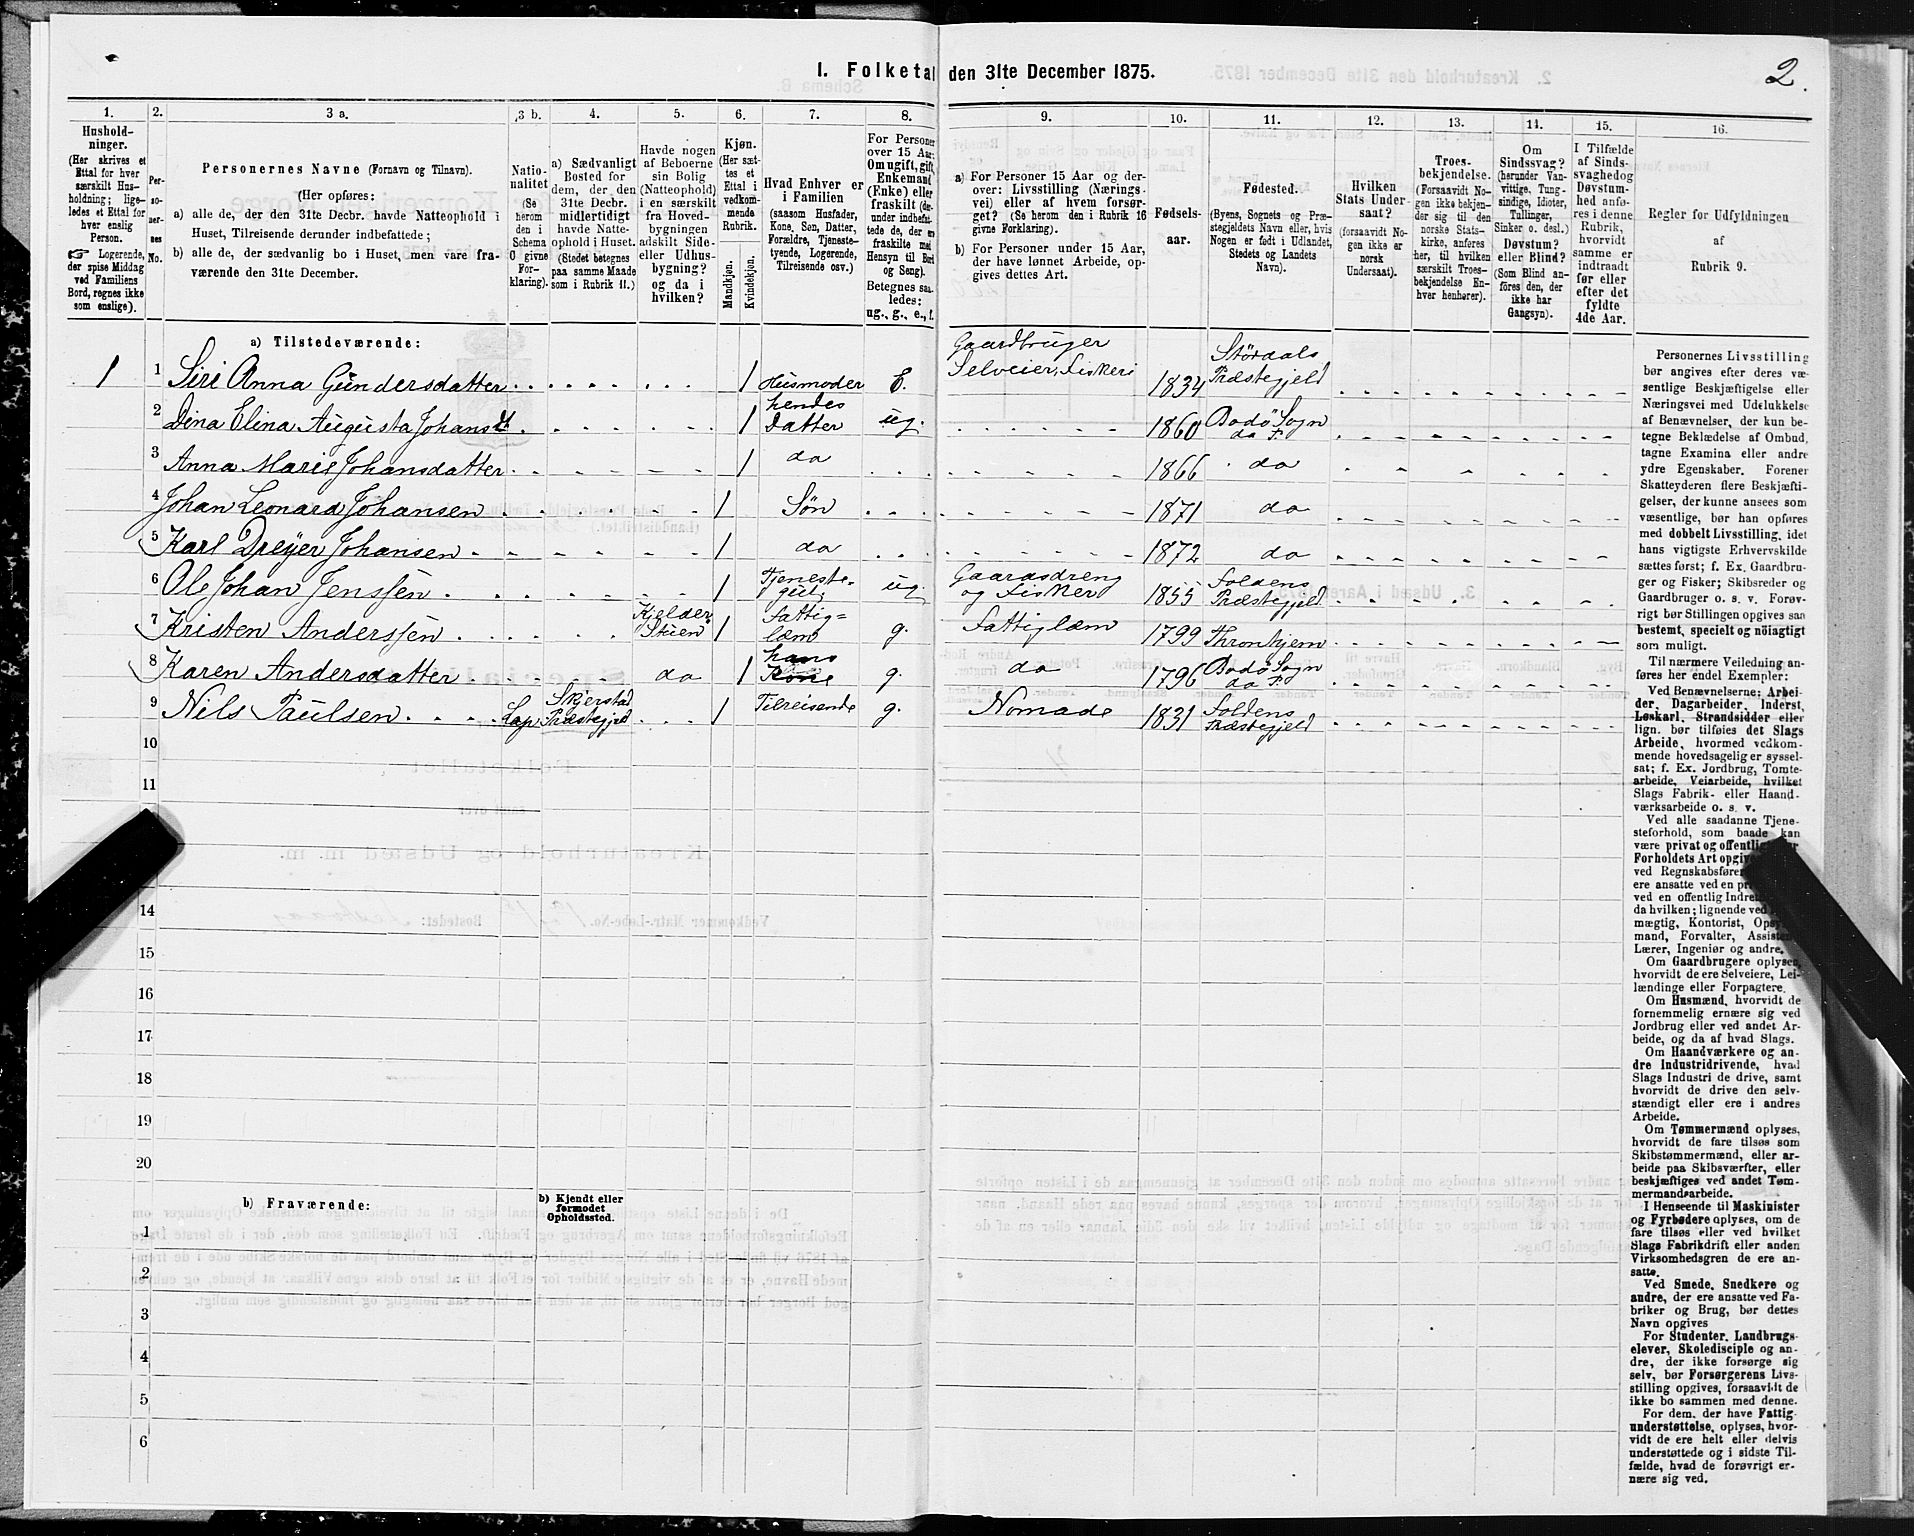 2.
I. Folketal den 31te December 1875.
1. 2. 3 a. 3 b. 4. 5. 6. 7. 8. 9. 10. 11. 12. 13. 14. 15. 16.
Hushold-
ninger.
(Her skrives et
Ettal for hver
særskilt Hus-
holdning; lige-
ledes et Ettal for
hver enslig
Person.
☞ Logerende,
der spise Middag
ved Familiens
Bord, regnes ikke
som enslige).
Per-
so-
ner-
nes
No.
Personernes Navne (Fornavn og Tilnavn).
(Her opføres:
a) alle de, der den 31te Decbr. havde Natteophold i
Huset, Tilreisende derunder indbefattede;
b) alle de, der sædvanlig bo i Huset, men vare fra-
værende den 31te December.
Natio-
nalitet
(Se
herom
den i
Schema
O givne
For-
klaring).
a) Sædvanligt
Bosted for
dem, der den
31te Decbr.
midlertidigt
havde Natte-
ophold i Huset.
(Stedet betegnes
paa samme Maade
som i Rubrik 11.)
Havde nogen
af Beboerne
sin Bolig
(Natteophold)
i en særskilt
fra Hoved-
bygningen
adskilt Side-
eller Udhus-
bygning?
og da i
hvilken?
Kjøn.
(Her sæt-
tes et
Ettal i
vedkom-
mende
Rubrik.
Mandkjøn.
Kvindekjøn.
Hvad Enhver er
i Familien
(saasom Husfader,
Kone, Søn, Datter,
Forældre, Tjeneste-
tyende, Logerende,
Tilreisende osv.)
For Personer
over 15 Aar:
Omugift, gift,
Enkemand
(Enke) eller
fraskilt (der-
under indbefat-
tede de, der ere
fraskilte med
Hensyn til Bord
og Seng).
Betegnes saa-
ledes:
ug., g., e., f.
a) For Personer 15 Aar og der-
over: Livsstilling (Nærings-
vei) eller af hvem forsør-
get? (Se herom den i Rubrik 16
givne Forklaring).
b) For Personer under 15 Aar,
der have lønnet Arbeide, op-
gives dettes Art.
Fødsels-
aar.
Fødested.
(Byens, Sognets og Præ-
stegjeldets Navn eller, hvis
Nogen er født i Udlandet,
Stedets og Landets
Navn).
Hvilken
Stats Under-
saat?
(forsaavidt No-
gen ikke er
norsk
Undersaat).
Troes-
bekjendelse.
(Forsaavidt No-
gen ikke bekjen-
der sig til den
norske Stats-
kirke, anføres
her, til hvilken
særskilt Troes-
bekjendelse En-
hver henhører).
Om
Sindssvag?
(herunder Van-
vittige, Tung-
sindige, Idioter,
Tullinger,
Sinker o. desl.)
Døvstum?
eller Blind?
(Som Blind an-
føres den, der
ikke har
Gangsyn).
I Tilfælde
af Sinds-
svaghedog
Døvstum-
hed anfø-
res i denne
Rubrik,
hvorvidt
samme er
indtraadt
før eller
efter det
fyldte
4de Aar.
Regler for Udfyldningen
af
Rubrik 9.
a) Tilstedeværende:
1 1 Siri Anna Gundersdatter 1 Husmoder E. Gaardbruger Selveier, Fiskeri 1834 Stördals Præstegjeld
2 Dina Elina Augusta Johansd. 1 hendes Datter ug. 1860 Bodö Sogn da P.
3 Anna Marie Johansdatter 1 da 1866 da
4 Johan Leonard Johansen 1 Sön 1871 da
5 Karl Dreyer Johansen 1 da 1872 da
6 Ole Johan Jenssen 1 Tjeneste- gut. ug. Gaardsdreng og Fisker 1855 Foldens Præstegjeld
7 Kristen Anderssen Kjelder Stuen 1 Fattig= læm g. Fattiglæm 1799 Thronhjem
8 Karen Andersdatter da 1 hans Kone g. da 1796 Bodö Sogn da P.
9 Nils Paulsen Lap Skjerstad Præstegjeld 1 Tilreisende g. Nomade 1831 Foldens Præstegjeld
10
11
14
15
16
17
18
19
20
b) Fraværende:
b) Kjendt eller
formodet
Opholdssted.
1
2
3
4
5
6
Personernes Livsstilling
bør angives efter deres væ-
sentlige Beskjæftigelse eller
Næringsvei med Udelukkelse
af Benævnelser, der kun be-
tegne Beklædelse af Ombud,
tagne Examina eller andre
ydre Egenskaber. Forener
Skatteyderen flere Beskjæfti-
gelser, der kunne ansees som
væsentlige, bør han opføres
med dobbelt Livsstilling, idet
hans vigtigste Erhvervskilde
sættes først; f. Ex. Gaardbru-
ger og Fisker; Skibsreder og
Gaardbruger o. s. v. Forøv-
rigt bør Stillingen opgives saa
bestemt, specielt og nöiagtigt
som muligt.
Til nærmere Veiledning an-
føres her endel Exempler:
Ved Benævnelserne: Arbei-
der, Dagarbeider, Inderst,
Løskarl, Strandsidder eller
lign. bør tilføies det Slags
Arbeide, hvormed vedkom-
mende hovedsagelig er syssel-
sat; f. Ex. Jordbrug, Tomte-
arbeide, Veiarbeide, hvilket
Slags Fabrik- eller Haand-
værksarbeide o. s. v.
Ved alle saadanne Tjene-
steforhold, som baade kan
være privat og offentlig
Forholdets Art opgives
ved Regnskabsfører
ere ansatte ved en
ved en offentlig
da hvilken; lignende ved
mægtig, Kontorist,
mand, Forvalter,
Lærer, Ingeniør og andre.
Om Gaardbrugere oplyses,
hvorvidt de ere Selveiere, Lei-
lændinge eller Forpagtere.
Om Husmænd, hvorvidt de
fornemmelig ernære sig ved
Jordbrug eller ved andet Ar-
beide, og da af hvad Slags.
Om Haandværkere og an-
dre Industridrivende, hvad
Slags Industri de drive, samt
hvorvidt de drive den selv-
stændigt eller ere i andres
Arbeide.
Om Tømmermænd oplyses,
hvorvidt de fare tilsøs som
Skibstømmermænd, eller ar-
beide paa Skibsværfter, eller
beskjæftiges ved andet Tøm-
mermandsarbeide.
I Henseende til Maskinister
og Fyrbødere oplyses, om de
fare tilsøs eller ved hvilket
Slags Fabrikdrift eller anden
Virksomhedsgren de ere an-
satte.
Ved Smede, Snedkere og
andre, der ere ansatte ved Fa-
briker og Brug, bør dettes
Navn opgives
For Studenter, Landbrugs-
elever, Skoledisciple og an-
dre, der ikke forsørge sig
selv, bør Forsørgerens Livs-
stilling opgives, forsaavidt de
ikke bo sammen med denne.
For dem, der have Fattig-
understøttelse, oplyses, hvor-
vidt de ere helt eller delvis
understøttede og i sidste Til-
fælde, hvad de forøvrigt er-
nære sig ved.